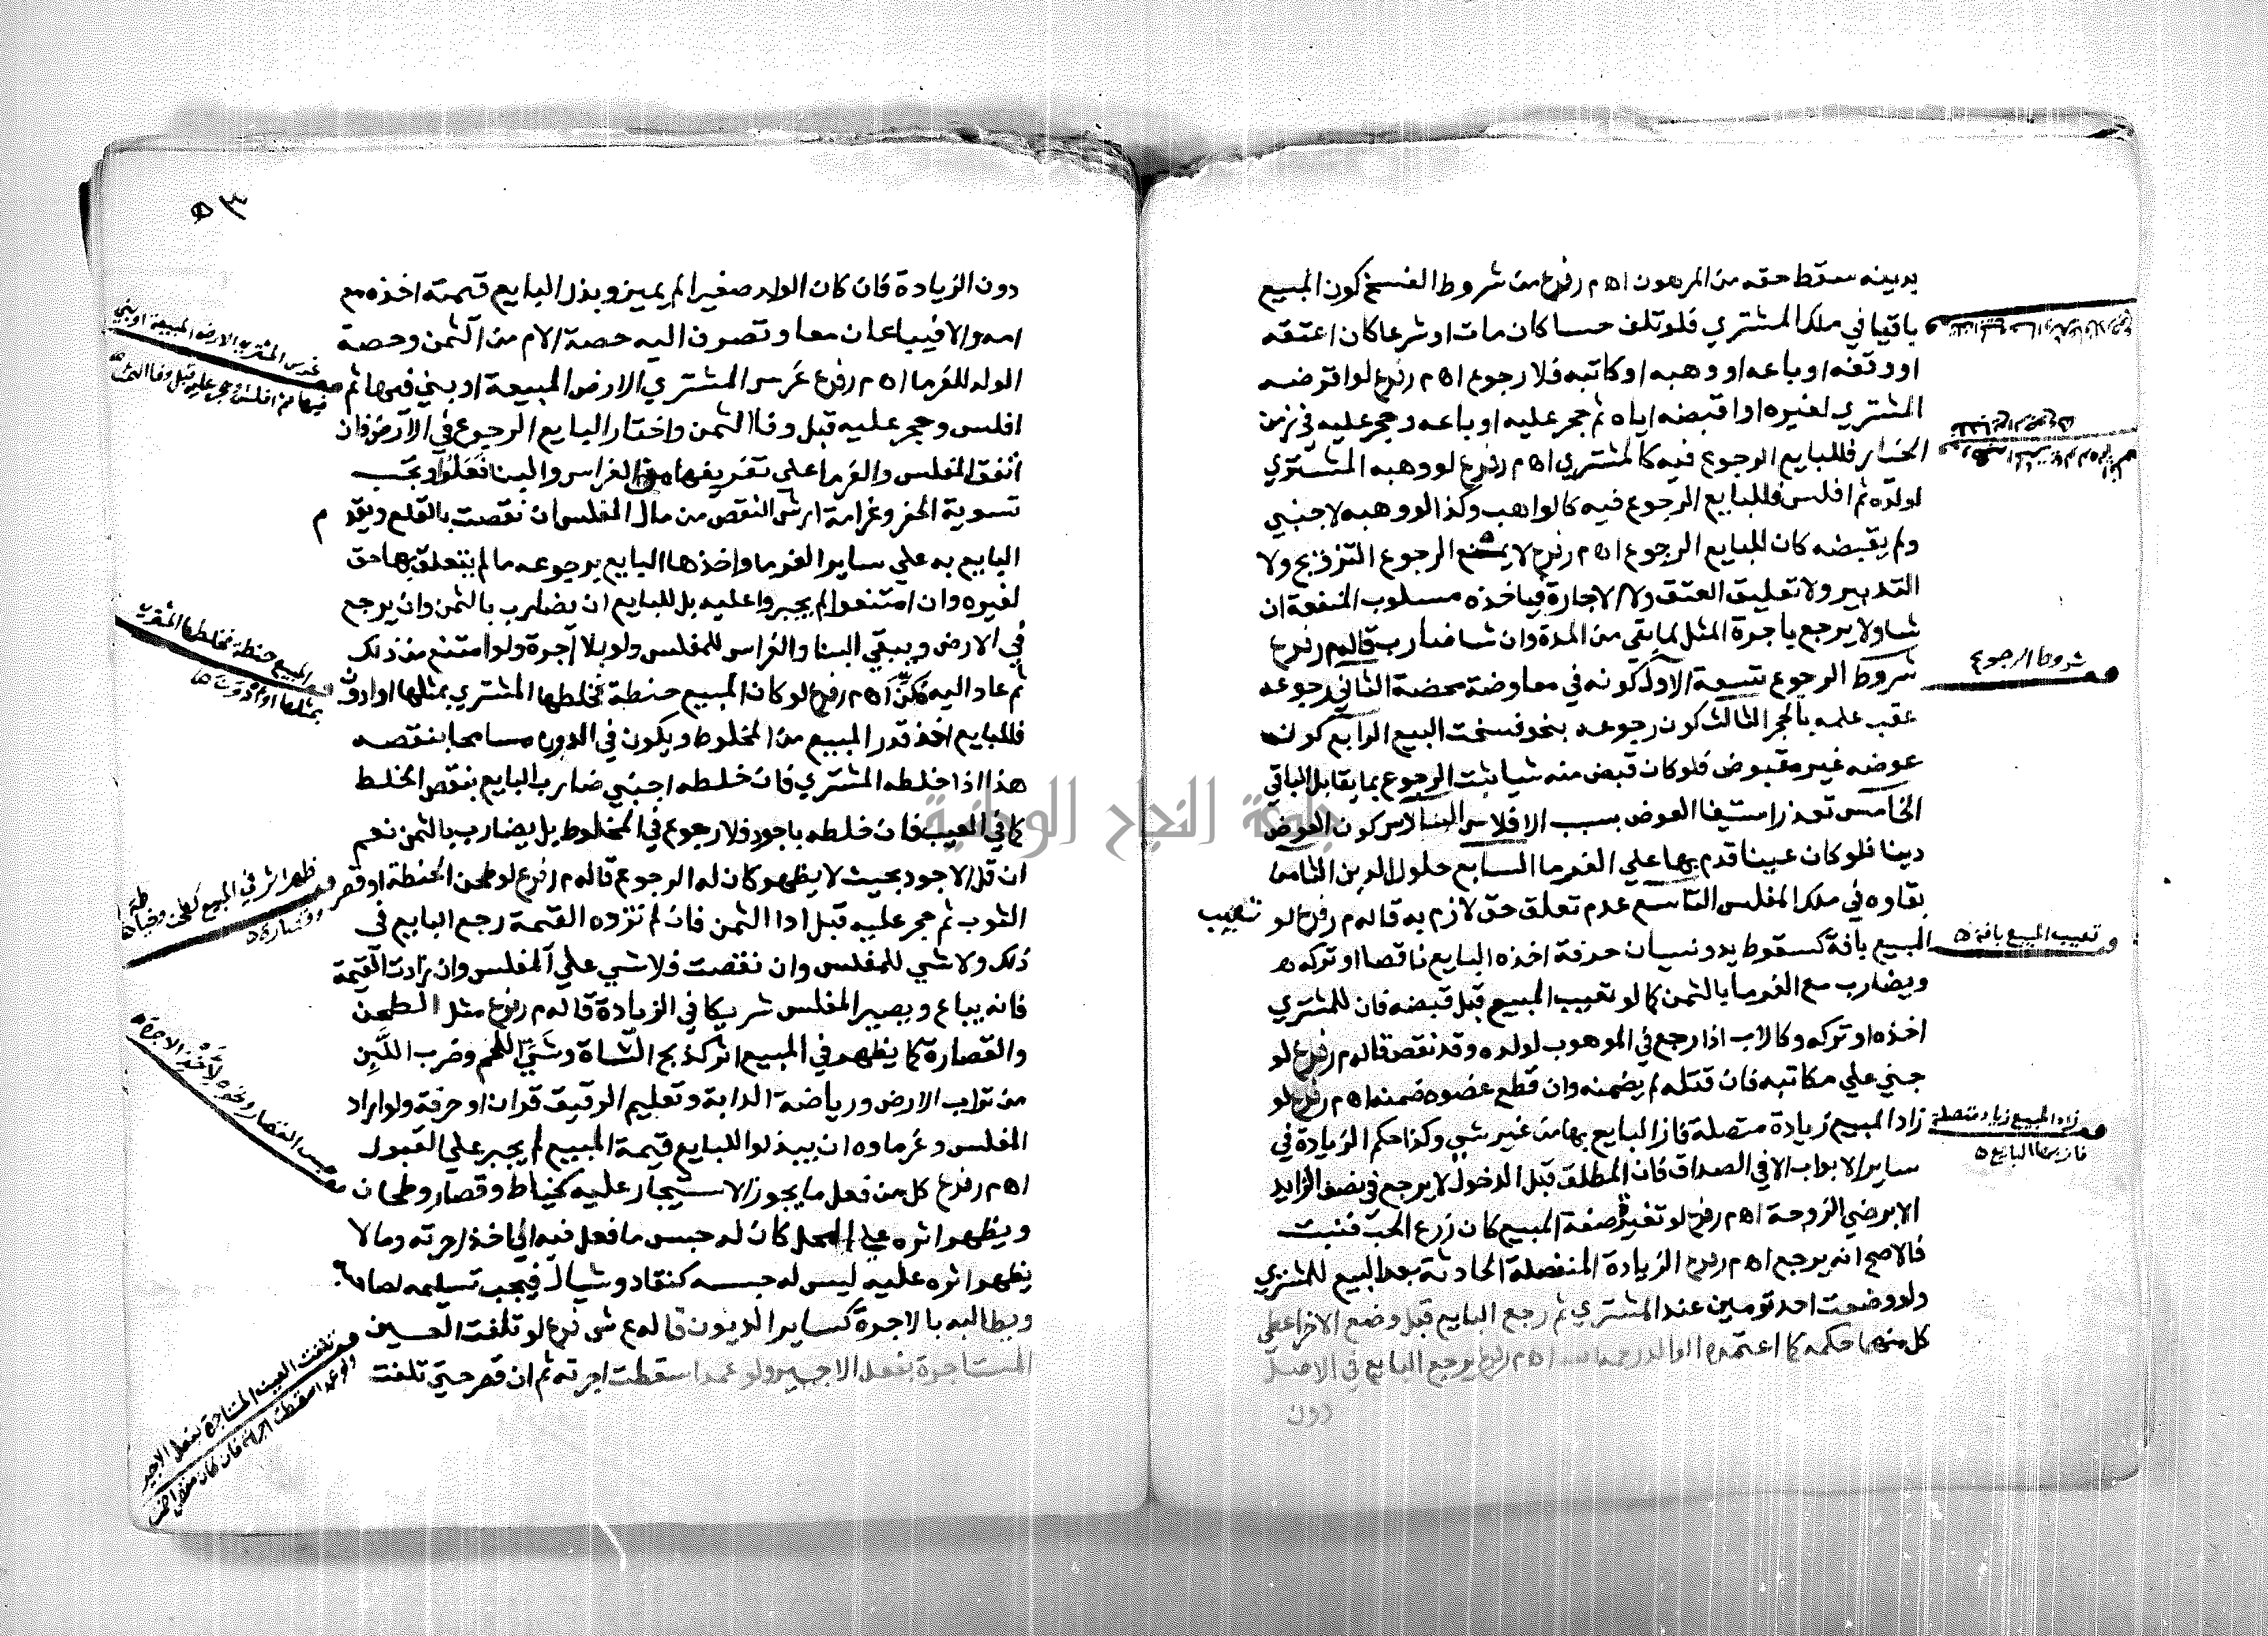 بدينه سقط حقه من المرهون اه م ر فرع من شروط الفسخ كون المبيع
باقيا في ملك المشتري فلو تلف حسا كان مات او شرعا كان اعتقه
او وقفه او باعه او وهبه او كاتبه فلا رجوع اه م ر فرع لو اقرضه
المشتري لغيره او اقبضه اياه ثم حجر عليه او باعه وحجر عليه في زمن
الخيار فللبايع الرجوع فيه كالمشتري اه م ر فرع لو وهبه المشتري
لولده ثم افلس فللبايع الرجوع فيه كالواهب وكذا لو وهبه لاجنبي
ولم يقبضه كان للبايع الرجوع اه م ر فرع لا يمنع الرجوع التزويج ولا
التدبير ولا تعليق العتق ولا الاجارة فياخذه مسلوب المنفعة ان
شا ولا يرجع باجرة المثل لما بقي من المدة وان شا ضارب قاله م ر فرع
شروط الرجوع تسعة الاول كونه في معاوضة محضة الثاني رجوعه
عقب علمه بالحجر الثالث كون رجوعه بنحو فسخت البيع الرابع كون
عوضه غير مقبوض فلو كان قبض منه شيا ثبت الرجوع بما يقابل الباقي
الخامس تعذر استيفا العوض بسبب الافلاس السادس كون العوض
دينا فلو كان عينا قدم بها علي الغرما السابع حلول الدين الثامن
بقاوه في ملك المفلس التاسع عدم تعلق حق لازم به قاله م ر فرع لو تعيب
المبيع بافة كسقوط يد ونسيان حرفة اخذه البايع ناقصا او تركه
ويضارب مع الغرما بالثمن كما لو تعيب المبيع قبل قبضه فان للمشتري
اخذه او تركه وكالاب اذا رجع في الموهوب لولده وقد نقص قاله م ر فرع لو
جني علي مكاتبه فان قتله لم يضمنه وان قطع عضوه ضمنه اه م ر فرع لو
زاد المبيع زيادة متصلة فاز البايع بها من غير شي وكذا حكم الزيادة في
ساير الابواب الا في الصداق فان المطلق قبل الدخول لا يرجع في نصف الزايد
الا برضي الزوجة اه م ر فرع لو تغيرت صفة المبيع كان زرع الحب فنبت
فالاصح انه يرجع اه م ر فرع الزيادة المنفصلة الحادثة بعد البيع للمشتري
ولو وضعت احد تومين عند المشتري ثم رجع البايع قبل وضع الاخر اعطي
كل منهما حكمه كما اعتمده الوالد رحمه الله اه م ر فرع يرجع البايع في الاصل
دون
شروط الرجوع
تعيب المبيع بافة
زاد المبيع زيادة متصلة
فاز بها البايع
٥٣
دون الزيادة فان كان الولد صغيرا لم يميز وبذل البايع قيمته اخذه مع
امه والا فيباعان معا وتصرف اليه حصة الام من الثمن وحصة
الولد للغرما اه م ر فرع غرس المشتري الارض المبيعة او بني فيها ثم
افلس وحجر عليه قبل وفا الثمن واختار البايع الرجوع في الارض فان
اتفق المفلس والغرما علي تفريغها من الغراس والبنا فعلوا وتجب
تسوية الحفر وغرامة ارش النقص من مال المفلس ان نقصت بالقلع ويقدم
البايع به علي ساير الغرما واخذها البايع برجوعه ما لم يتعلق بها حق
لغيره وان امتنعوا لم يجبروا عليه بل للبايع ان يضارب بالثمن وان يرجع
في الارض ويبقي البنا والغراس للمفلس ولو بلا اجرة ولو امتنع من ذلك
ثم عاد اليه مكن اه م ر فرع لو كان المبيع حنطة فخلطها المشتري بمثلها او ادون
فللبايع اخذ قدر المبيع من المخلوط ويكون في الدون مسامحا بنقصه
هذا اذا خلطه المشتري فان خلطه اجنبي ضارب البايع بنقص الخلط
كما في العيب فان خلطه باجود فلا رجوع في المخلوط بل يضارب بالثمن نعم
ان قل الاجود بحيث لا يظهر كان له الرجوع قاله م ر فرع لو طحن الحنطة او قصر
الثوب ثم حجر عليه قبل ادا الثمن فان لم تزده القيمة رجع البايع في
ذلك ولا شي للمفلس وان نقصت فلا شي علي المفلس وان زادت القيمة
فانه يباع ويصير المفلس شريكا في الزيادة قاله م ر فرع مثل الطحن
والقصارة كما يظهر في المبيع اثر كذبح الشاة وشي اللحم وضرب اللبن
من تراب الارض ورياضة الدابة وتعليم الرقيق قران او حرفة ولو اراد
المفلس وغرماوه ان يبذلوا للبايع قيمة المبيع لم يجبر علي القبول
اه م ر فرع كل من فعل ما يجوز الاستيجار عليه كخياط وقصار وطحان
ويظهر اثره علي المحل كان له حبس ما فعل فيه الي اخذ اجرته وما لا
يظهر اثره عليه ليس له حبسه كنقاد وشيال فيجب تسليمه لصاحبه
ويطالبه بالاجرة كساير الديون قاله ع ش فرع لو تلفت العين
المستاجرة بفعل الاجير ولو عمدا سقطت اجرته ثم ان قصر حتي تلفت
غرس المشتري الارض المبيعة او بني
فيها ثم افلس وحجر عليه قبل وفا الثمن
المبيع حنطة فخلطها المشتري
بمثلها او ادون
ظهر اثر في المبيع كطحن
وقصارة
حبس القصار ونحوه لاخذ الاجرة
تلفت العين المستاجرة بفعل الاجير
جامعة النجاح الوطنية